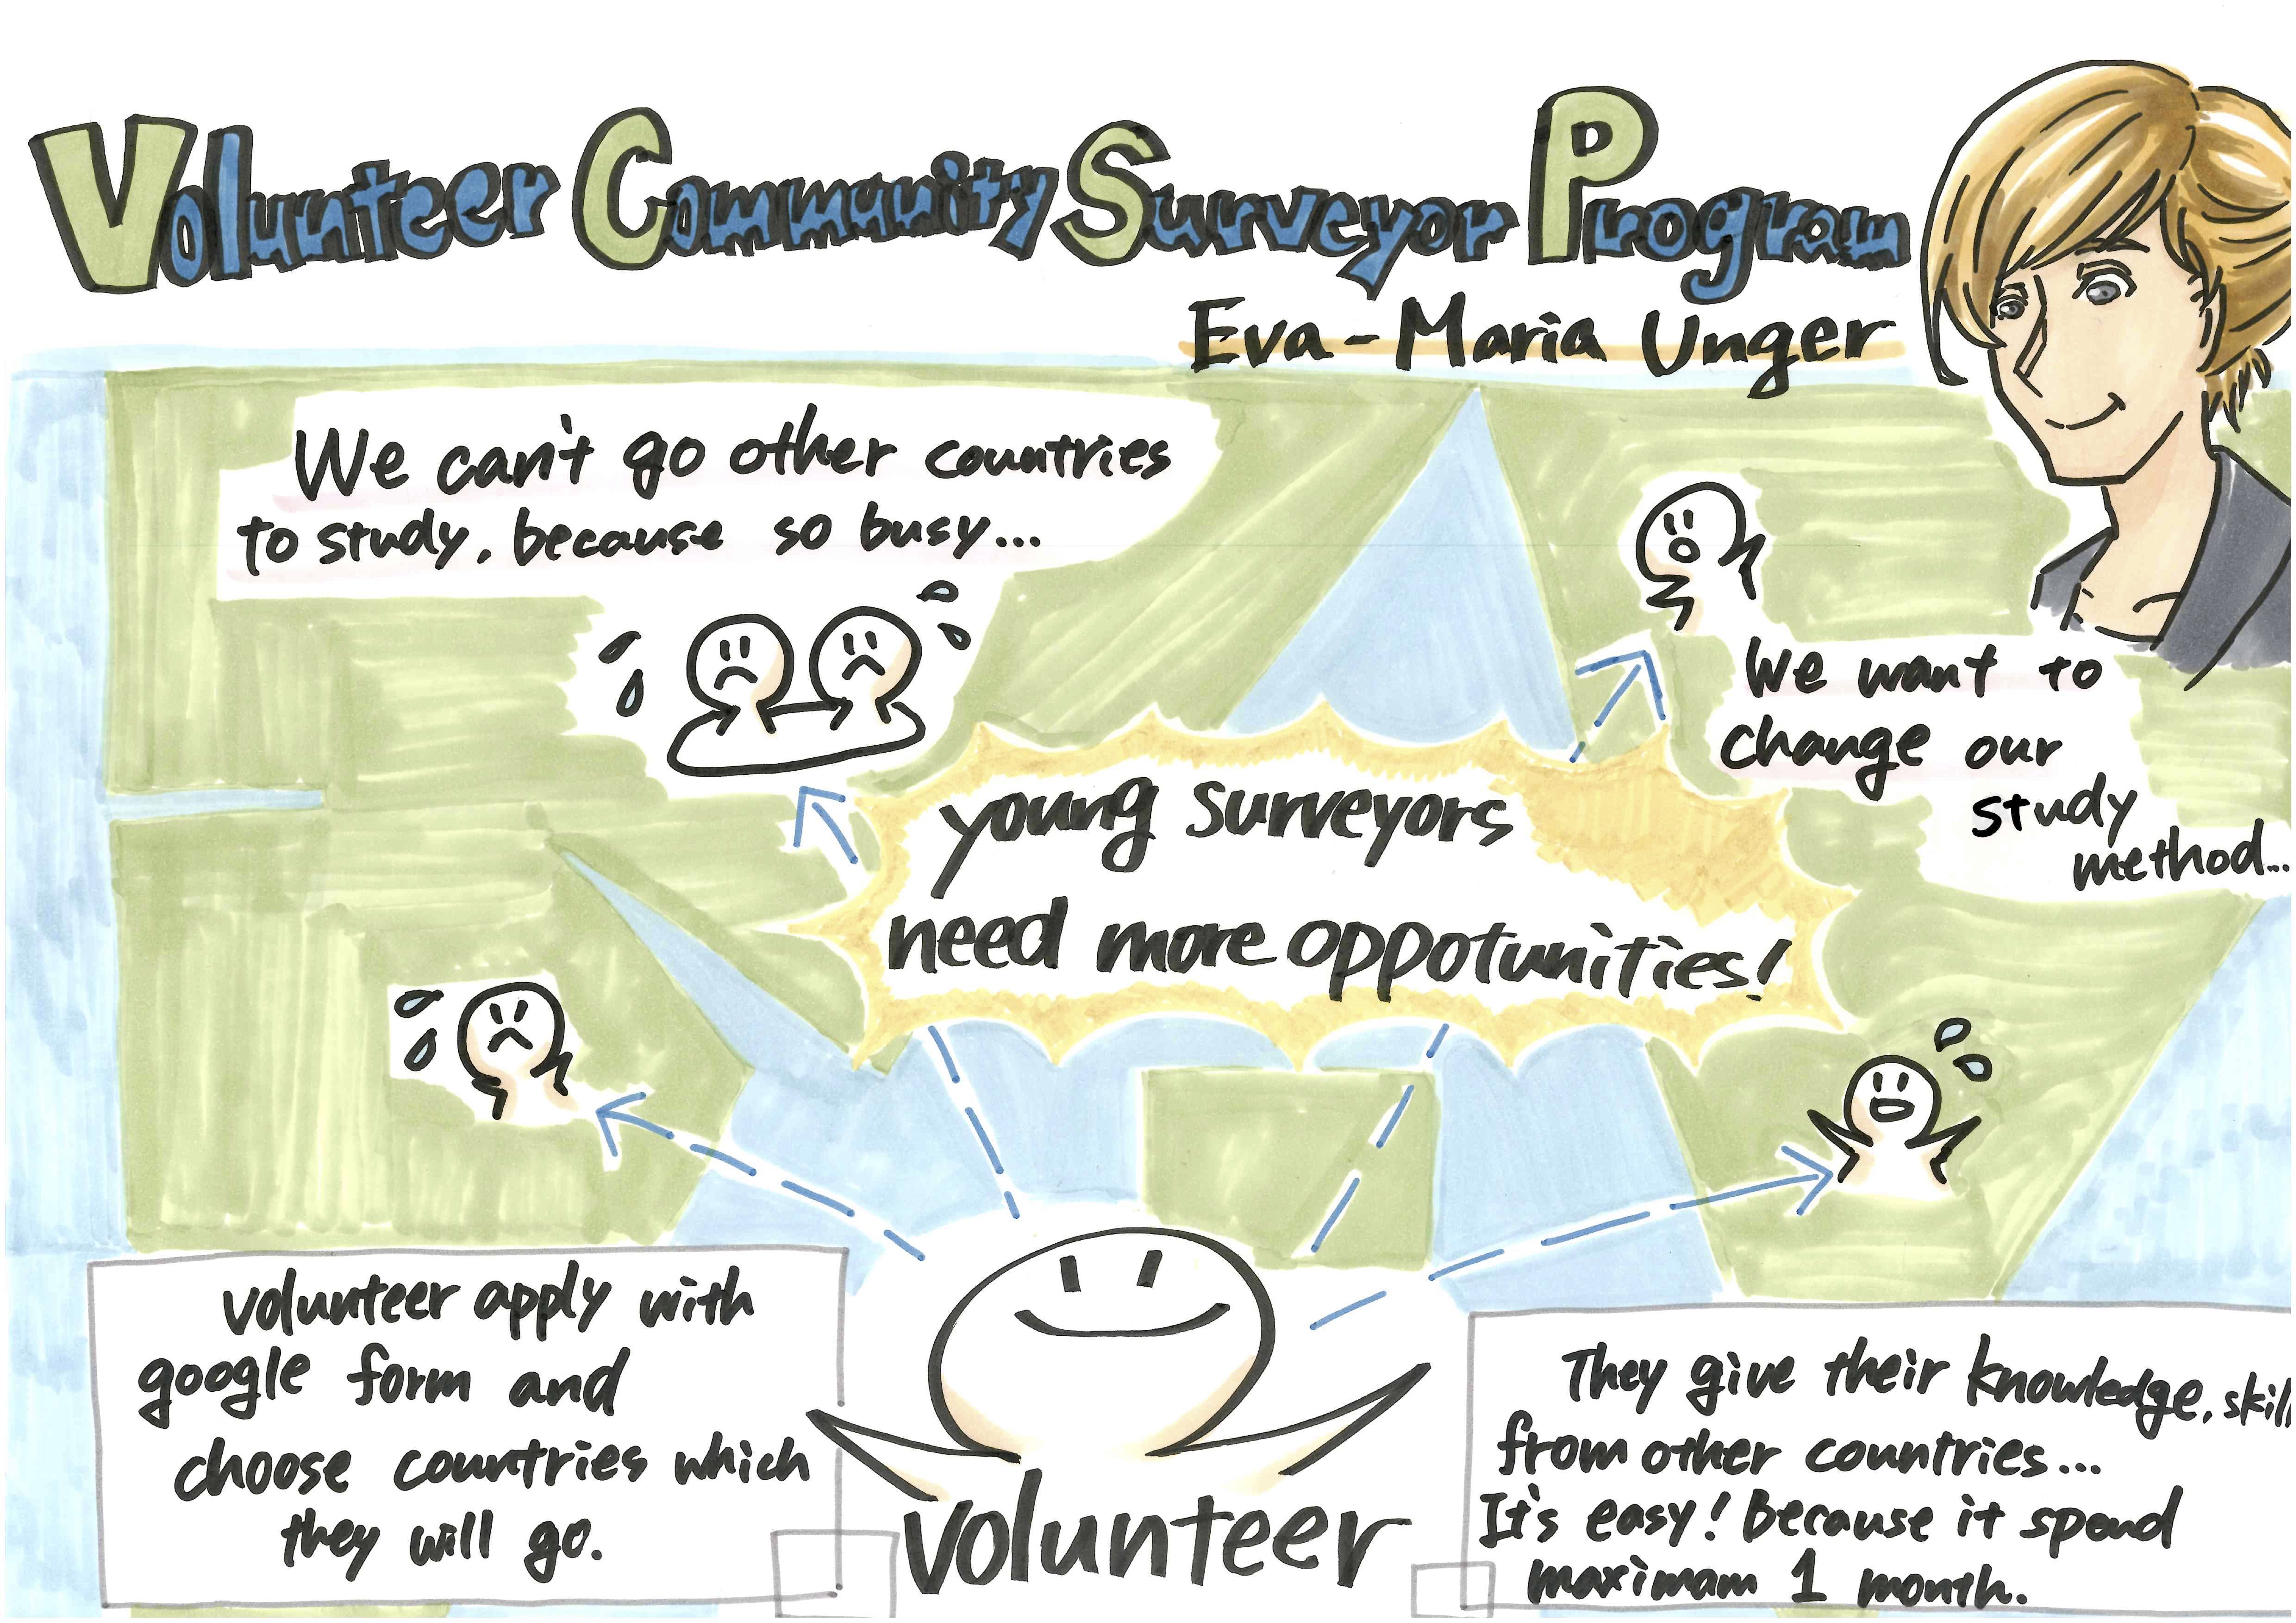 Volunteer Community Surveyor Program
Eva-Maria Unger
We can't go other countries
to study, because so busy...
We want to
change our
study
method...
young surveyors
need more oppotunities!
volunteer apply with
google form and
choose countries which
they will go.
volunteer
They give their knowledge, skill
from other countries...
It's easy! Because it spend
maximam 1 month.